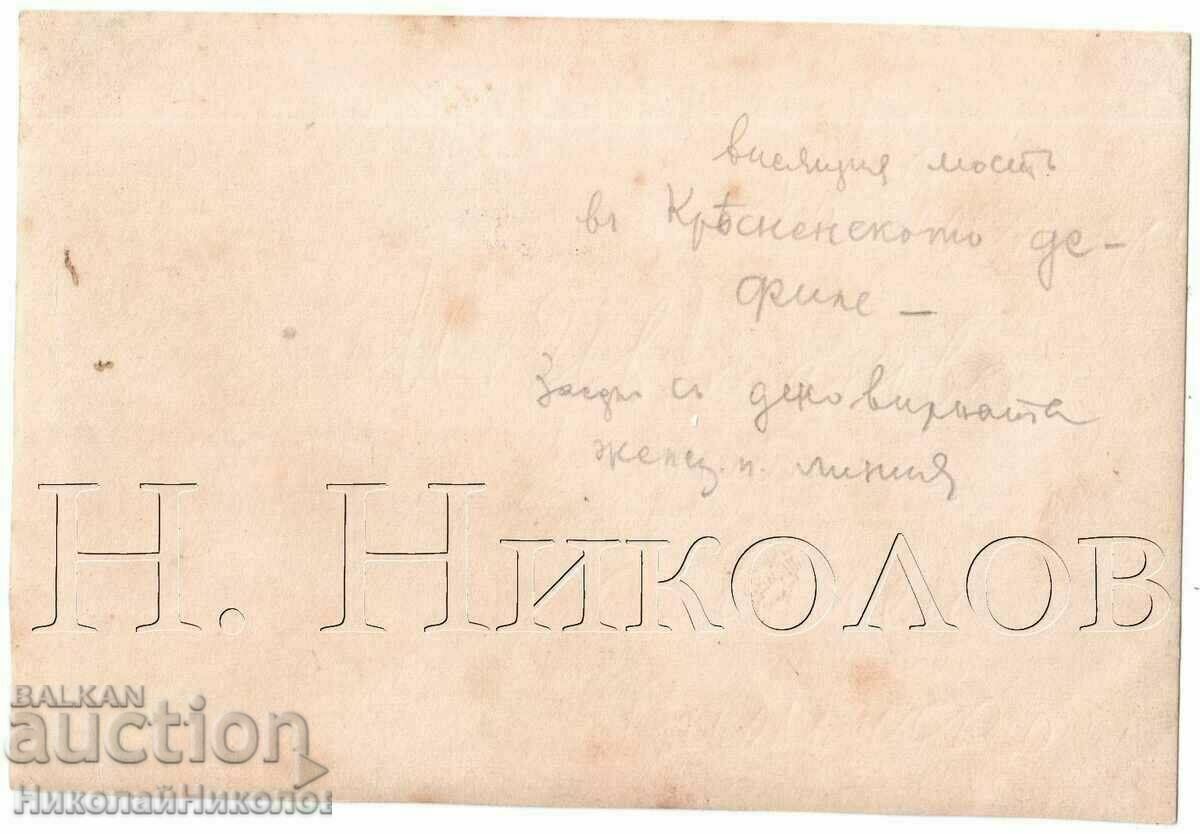 висящия мостъ
въ Крѣсненското де-
филе –
Заедно съ дековилната
желѣз. п. линия
Н. Николов
BALKAN
auction
НиколайНиколов